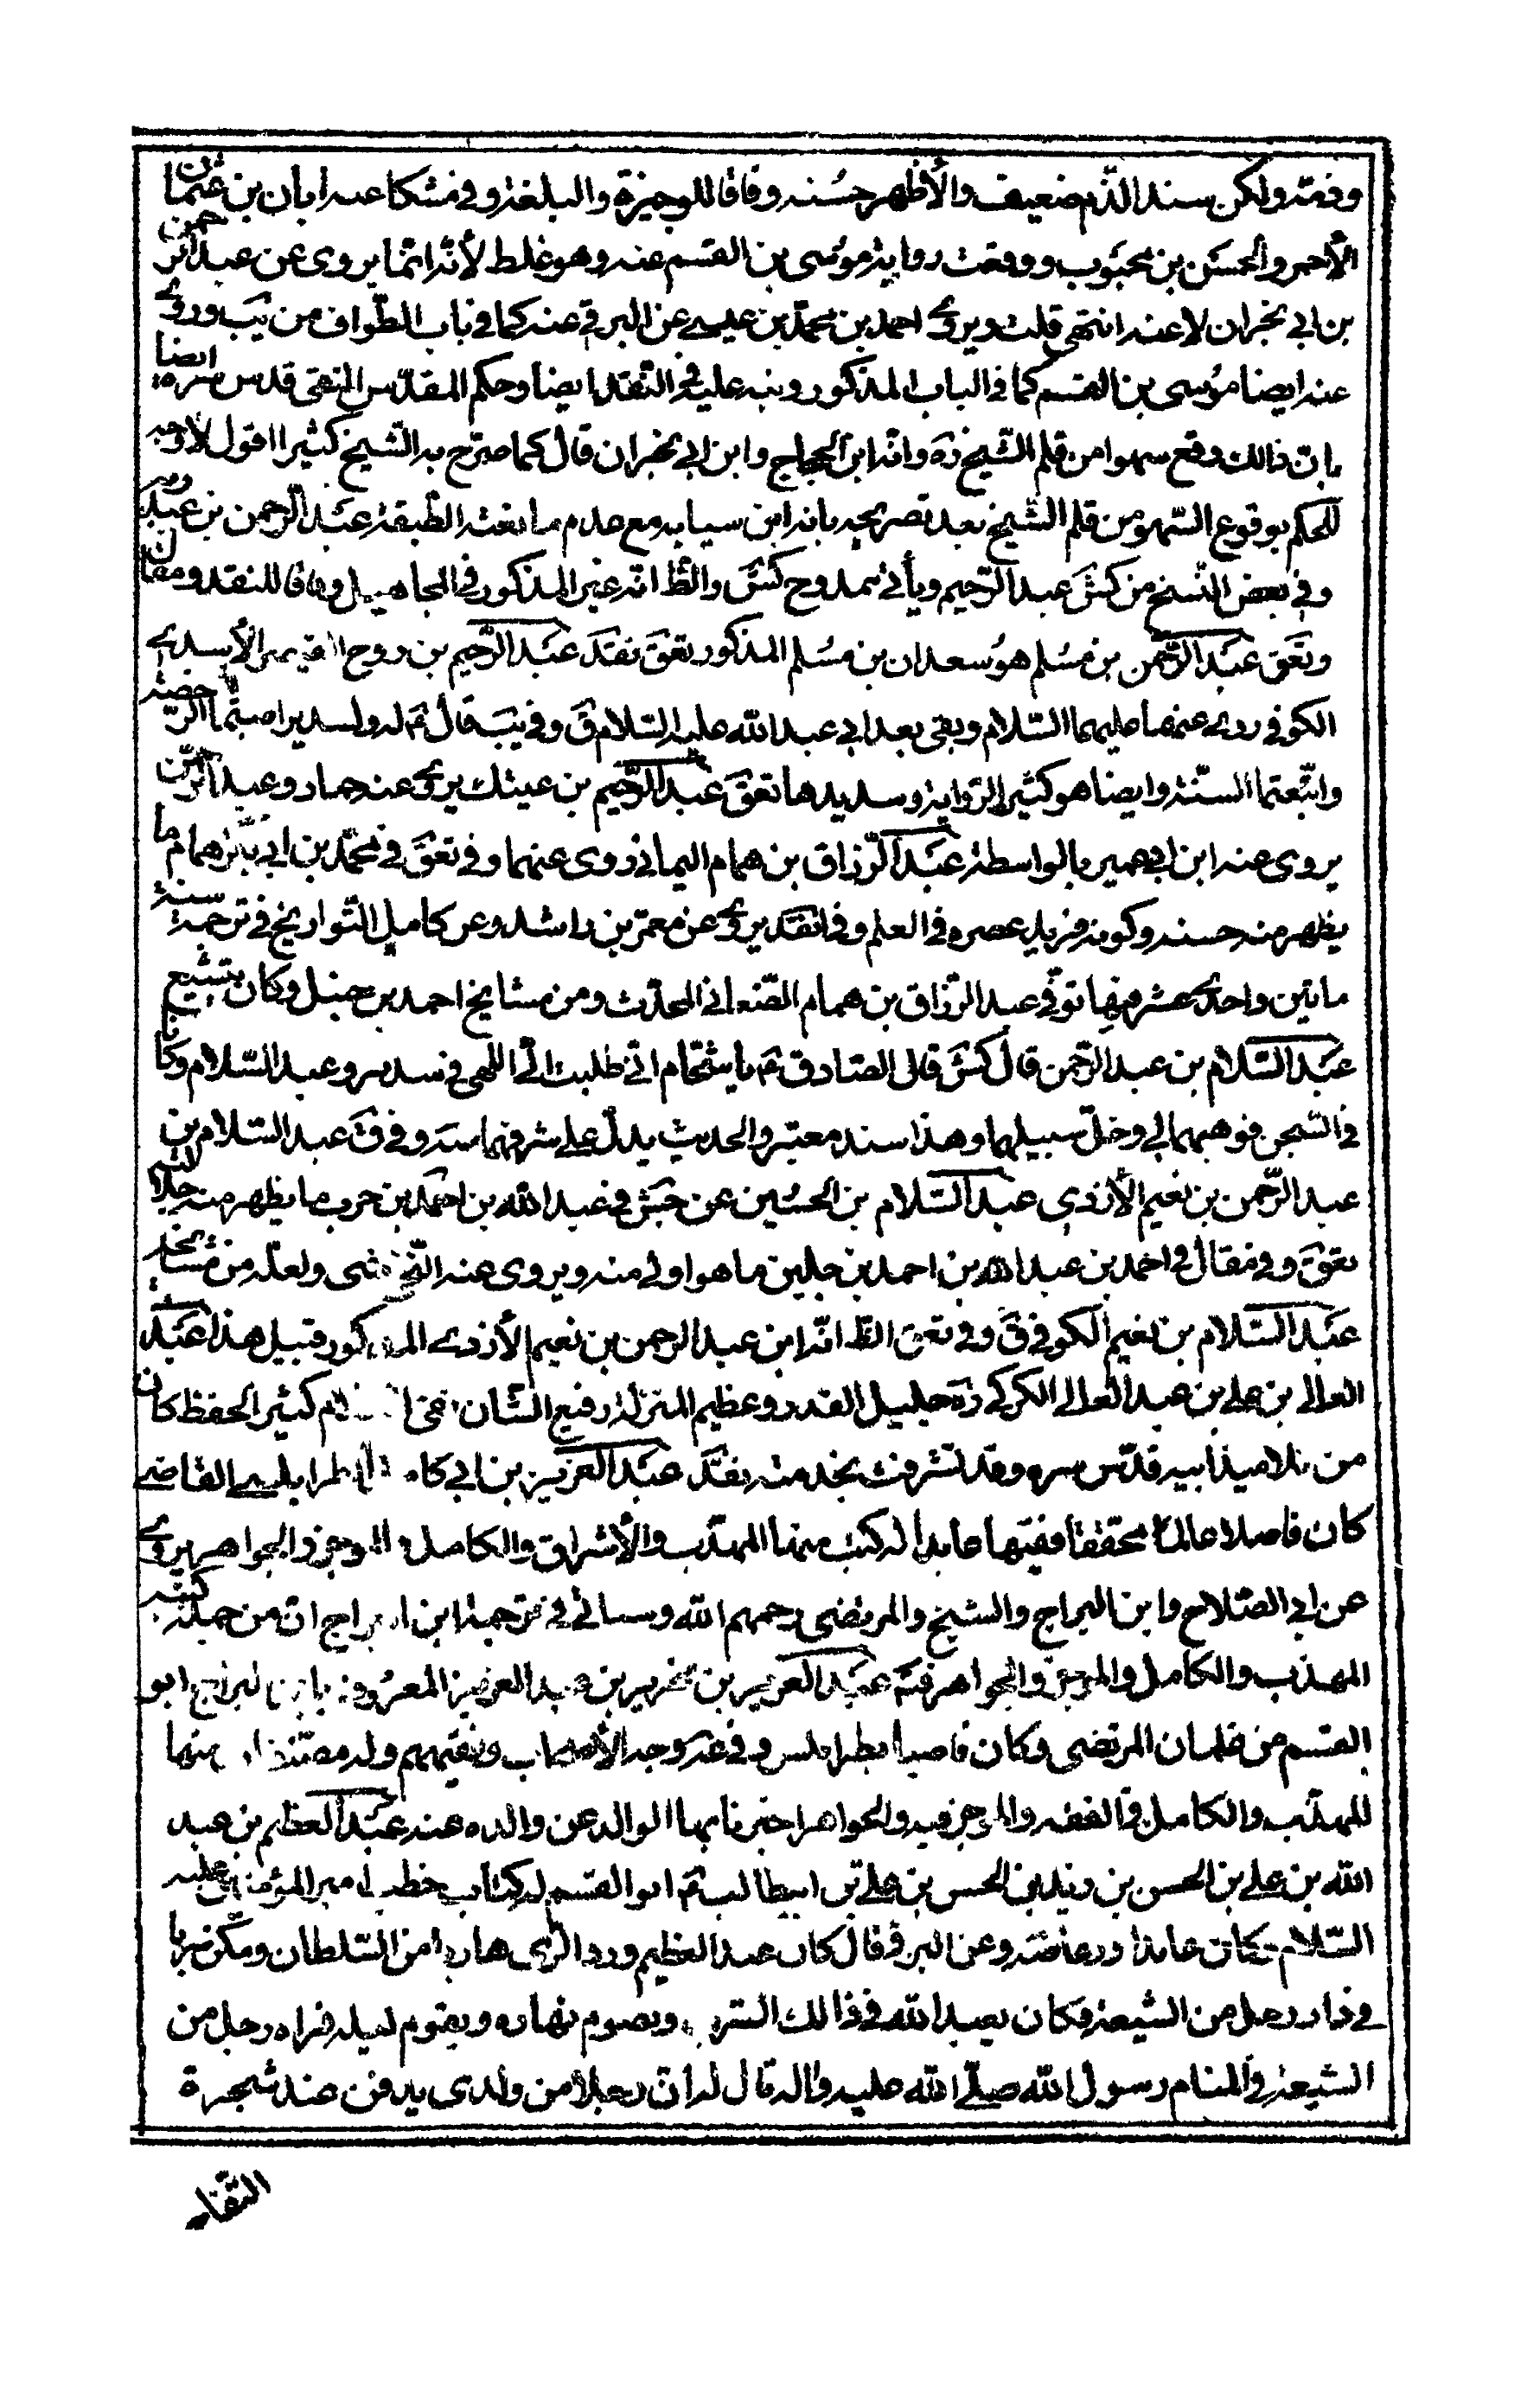 وذمّه ولكن سند الذّم ضعيف والأظهر حسنه وفاقا للوجيزة والبلغة وفي مشكا عنه ابان بن عثمان
الأحمر والحسن بن محبوب ووقعت رواية موسى بن القسم عنه وهو غلط لأنّه انّما يروى عن عبد الرّحمن
بن ابى نجران لا عنه انتهى قلت ويروى احمد بن محمّد بن عيسى عن البرقى عنه كما في باب الطّواف من يَب وروى
عنه ايضا موسى بن القسم كما في الباب المذكور ونبه عليه في النّقد ايضا وحكم المقدّس التقى قدس سره ايضا
بانّ ذالك وقع سهوا من قلم الشّيخ ره وانّه ابن الحجاج وابن ابى نجران قال كما صرّح به الشّيخ كثيرا اقول لا وجه
للحكم بوقوع السّهو من قلم الشّيخ بعد تصريحه بانه ابن سيابه مع عدم مانعة الطّبقة عبد الرّحمن بن عبد ربه
وفي بعض النّسخ من كش عبد الرّحيم ويأتى ممدوح كش والظّ انّه غير المذكور في المجاهيل وفاقا للنقد ومقال
وتعق عبد الرّحمن بن مسلم هو سعدان بن مسلم المذكور تعق نقد عبد الرّحيم بن روح القصير الأسدى
الكوفى روى عنهما عليهما السّلام وبقى بعد ابى عبد الله عليه السّلام ق وفي يب قال ع له ولسدير اصبتما الرّخصة
واتّبعتما السنّة وايضا هو كثير الرّواية وسديدها تعق عبد الرّحيم بن عتيك يروى عنه حماد وعبد الرّحمن
يروى عنه ابن ابى عمير بالواسطة عبد الرّزاق بن همام اليمانى روى عنهما وفي تعق في محمّد بن ابى بكر همام ما
يظهر منه حسنه وكونه فريد عصره في العلم وفي نقد يروى عن معمر بن راشد وعن كامل التّواريخ في ترجمة سنة
مايتين واحدى عشر منها توفّى عبد الرّزاق بن همام الصّنعانى المحدّث ومن مشايخ احمد بن حنبل وكان يتشيع
عبد السّلام بن عبد الرّحمن قال كش قال الصّادق ع يا شحّام انّى طلبت الى الهى في سدير وعبد السّلام وكانا
في السّجن فوهبهما لى وخلّى سبيلهما وهذا سند معتبر والحديث يدلّ على شرفهما سه وفي ق عبد السّلام بن
عبد الرّحمن بن نعيم الأزدى عبد السّلام بن الحسين عن جش في عبد الله بن احمد بن حرب ما يظهر منه جلالته
تعق وفي مقال في احمد بن عبد الله بن احمد بن جلين ما هو اولى منه ويروى عنه النّجاشى ولعلّه من مشايخه
عبد السّلام بن نعيم الكوفى ق وفي تعق الظّ انّه ابن عبد الرحمن بن نعيم الأزدى المذكور قبيل هذا عبد
العالى بن على بن عبد العالى الكركى ره جليل القدر وعظيم المنزلة رفيع الشّان نقى الكلام كثير الحفظ كان
من تلاميذ ابيه قدّس سره وقد تشرفت بخدمته نقد عبد العزيز بن ابى كامل الطرابلسى القاضى
كان فاضلا عالما محققا فقيها عابدا له كتب منها المهذّب والأشراق والكامل والموجز والجواهر يروى
عن ابى الصّلاح وابن البراج والشيخ والمرتضى رحمهم الله وسياتى في ترجمة ابن البراج ان من جملة كتبه
المهذب والكامل والموجز والجواهر فتَه عبد العزيز بن نحرير بن عبد العزيز المعروف بابن البراج ابو
القسم من غلمان المرتضى وكان قاضيا بطرابلس وفي عه وجه الأصحاب وفقيههم وله مصنّفات منها
المهذّب والكامل في الفقه والموجز فيه والجواهر اخبرنا بها الوالد عن والده عنه عبد العظيم بن عبد
الله بن على بن الحسن بن زيد بن الحسن بن على بن ابيطالب ع ابو القسم له كتاب خطب امير المؤمنين عليه
السّلام كان عابدا ورعا ضه وعن البرقى قال كان عبد العظيم ورد الرّى هاربا من السّلطان وسكن سربا
في دار رجل من الشيعة فكان يعبد الله في ذالك السّرب ويصوم نهاره ويقوم ليله فراه رجل من
الشيعة في المنام رسول الله صلّى الله عليه واله قال له انّ رجلا من ولدى يدفن عند شجرة
التفاح